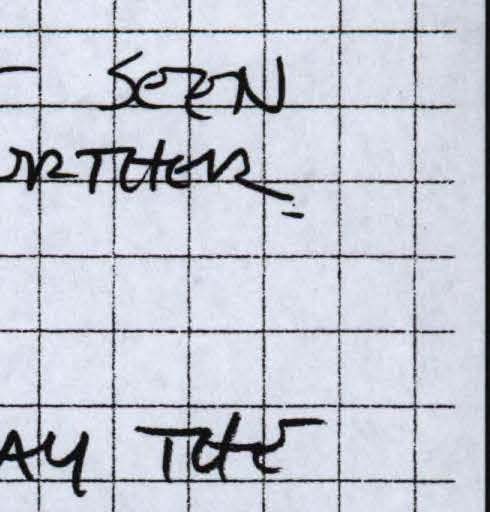 SEEN
URTHER
AY THE